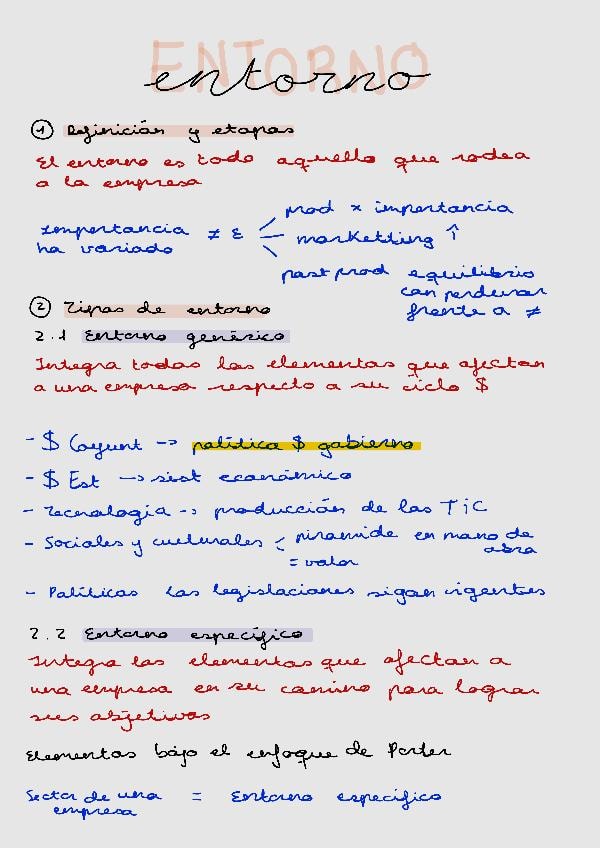 ENTORNO
entorno
1 Definición y etapas
El entorno es todo aquello que rodea
a la empresa
importancia ha variado ≠ E
prod x importancia
marketting ↑
past prod equilibrio
con perdurar
frente a ≠
2 Tipos de entorno
2.1 Entorno genérico
Integra todos los elementos que afectan
a una empresa respecto a su ciclo $
- $ Coyunt -> política $ gobierno
- $ Est -> sist económico
- Tecnología -> producción de las TiC
- Sociales y culturales < piramide en mano de obra
= valor
- Políticas las legislaciones sigan vigentes
2.2 Entorno específico
Integra los elementos que afectan a
una empresa en su camino para lograr
sus objetivos
Elementos bajo el enfoque de Porter
Sector de una empresa = Entorno específico